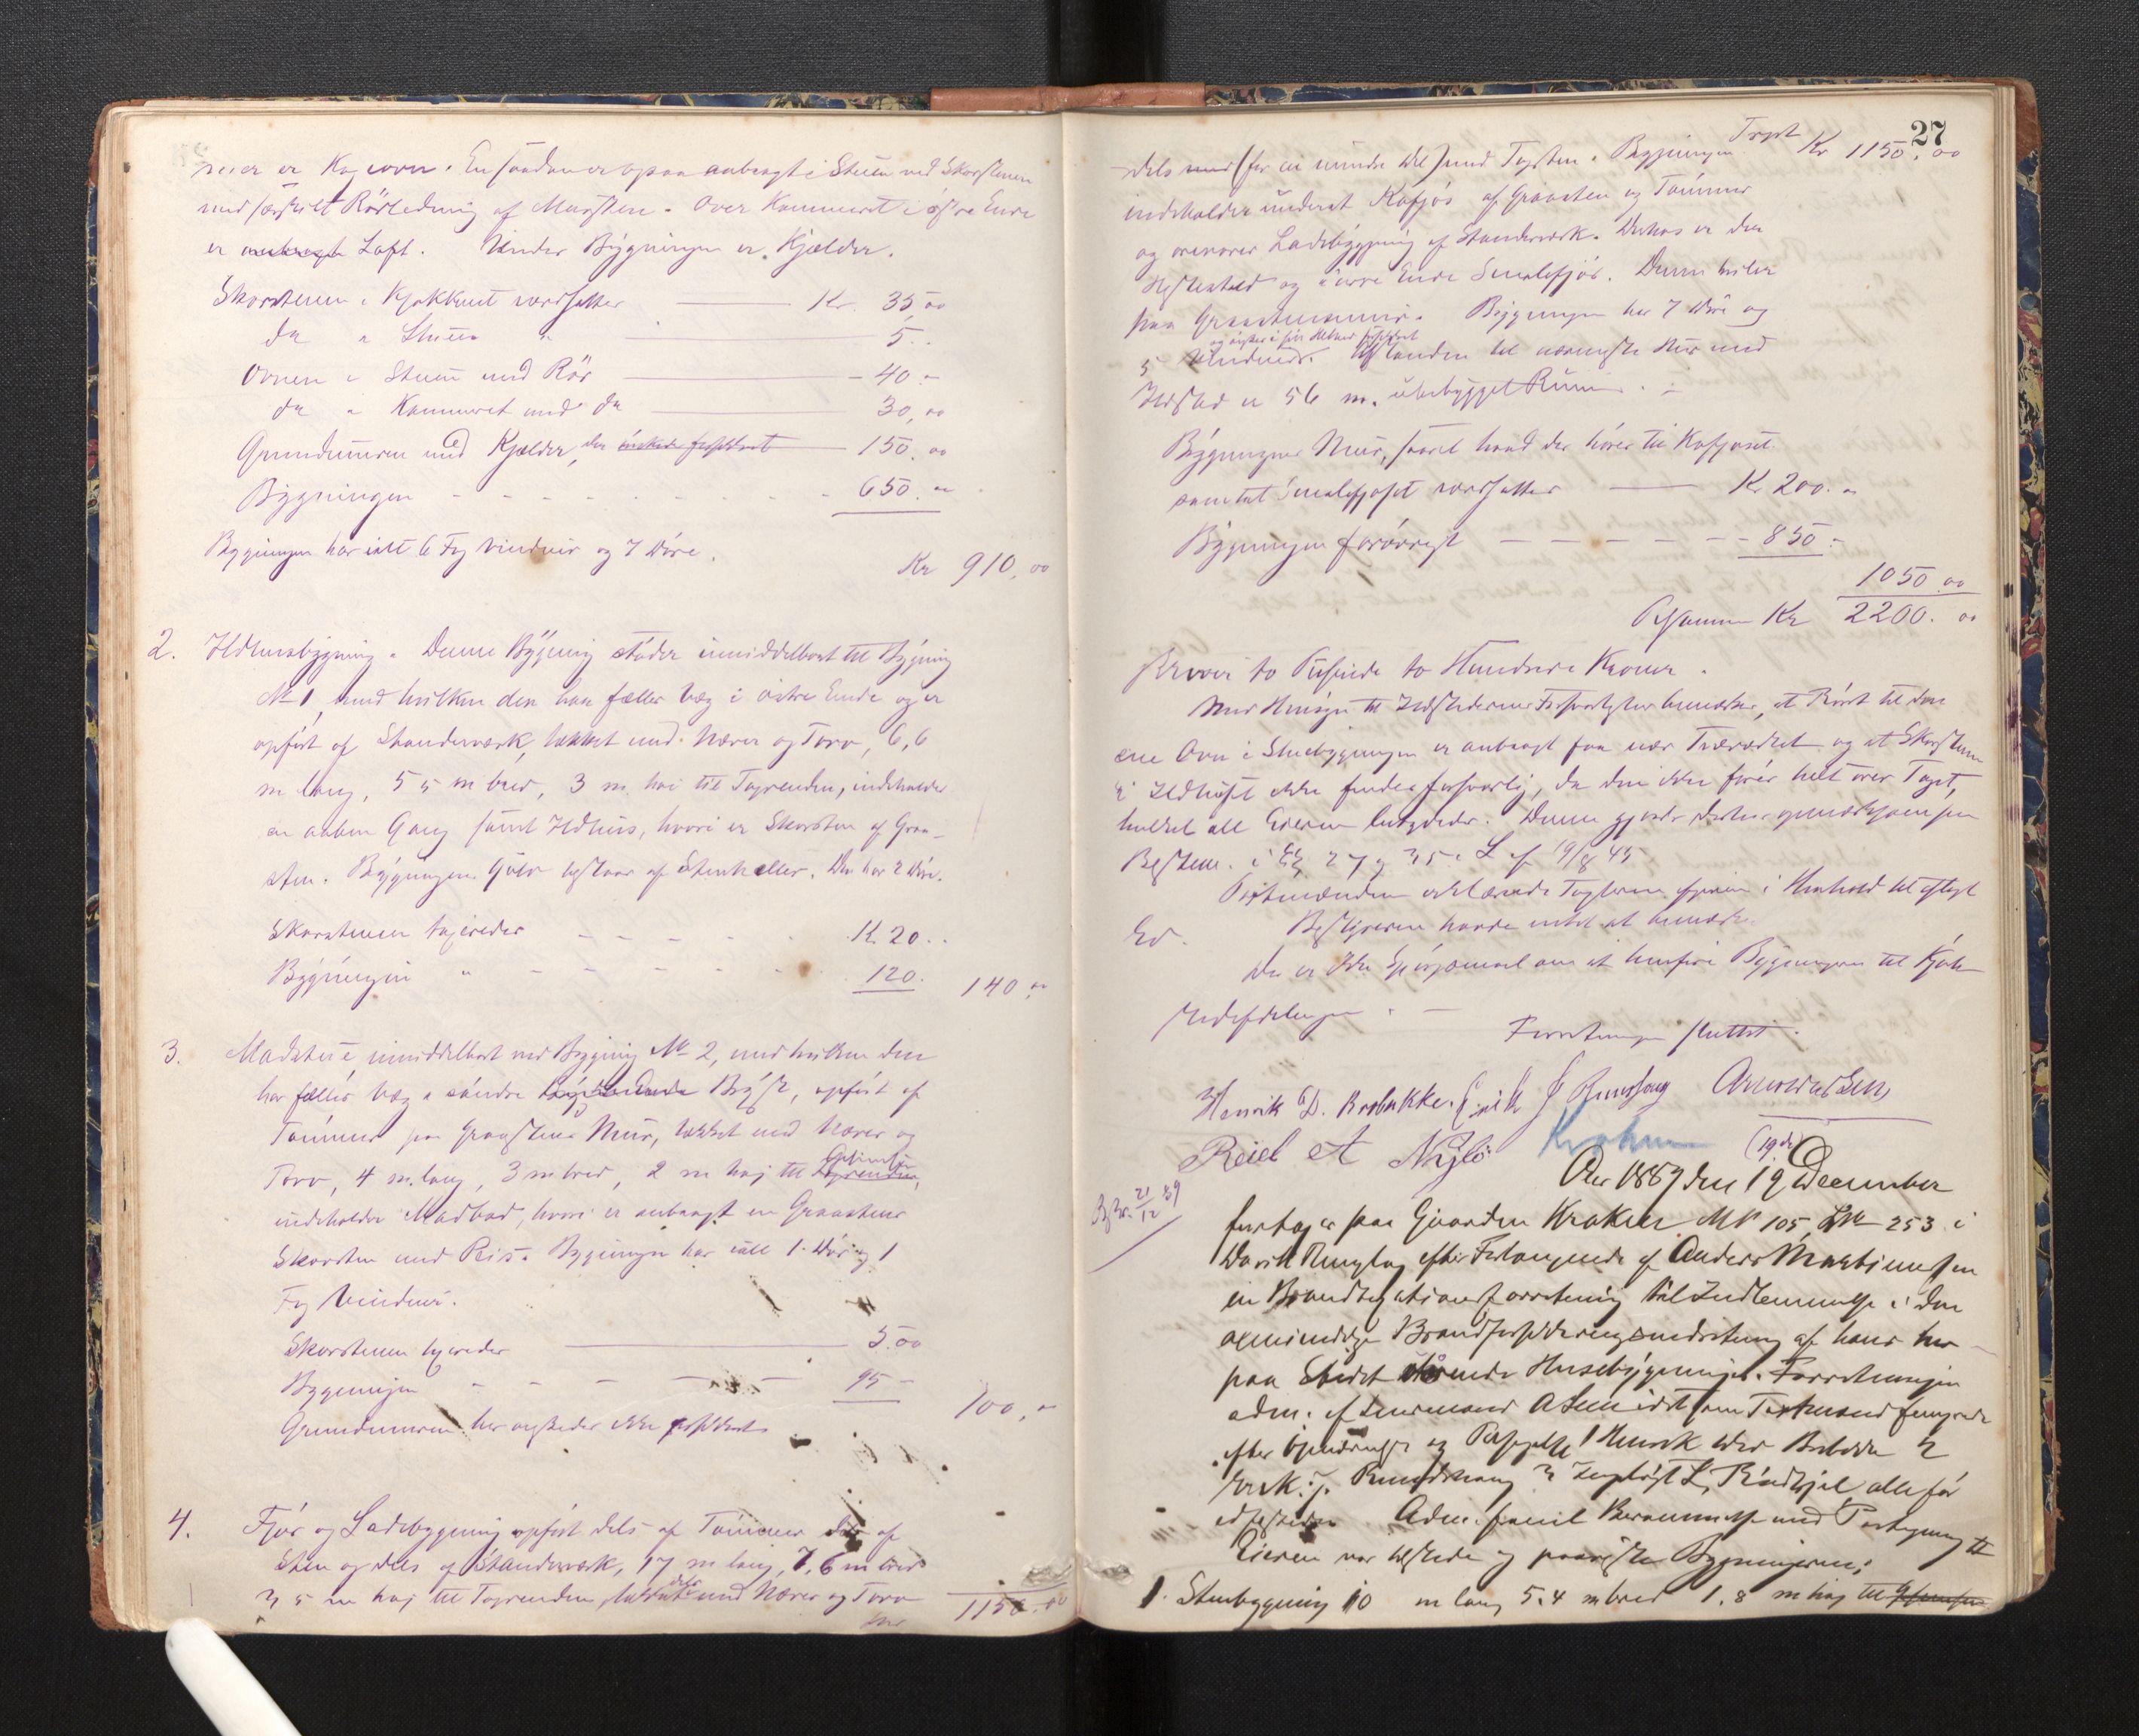 er Kogeovn. En saadan er ogsaa anbragt i Stuen ved Skorstenen
med særskilt Rörledning af Mursten. Over Kammeret i østre Ende
er anbragt Loft. Under Bygningen er Kjælder.
Skorstenen i Kjøkkenet værdsættes Kr. 35,00
do i Stuen " 5..
Ovnen i Stuen med Rör 40.-
do i Kammeret med do 30,00
Grundmuren med Kjælder, der önskes forsikret 150.00
Bygningen 650.00
Bygningen har ialt 6 Fag Vinduer og 7 Döre.
Kr 910,00
2. Ildhusbygning. Denne Bygning støder umiddelbart til Bygning
No 1, med hvilken den har fælles Væg i østre Ende og er
opfört af Standerværk, tækket med Næver og Torv, 6,6
m lang, 5 5 m bred, 3 m. høi til Tagrenden, indeholder
en aaben Gang samt Ildhus, hvori er Skorsten af Graa-
sten. Bygningens Gulv bestaar af Stenheller. Den har 2 Döre.
Skorstenen taxeredes K. 20..
Bygningen " 120. 140.00
3. Madstue, umiddelbart ved Bygning No 2, med hvilken den
har fælles Væg i söndre Bygn, opfört af
Tömmer paa Graastens Mur, tækket med Næver og
Torv, 4 m. lang, 3 m bred, 2 m høj til Tagrenden,
indeholder Madbod, hvori er anbragt en Graastens
Skorsten med Peis. Bygningen har ialt 1 Dör og 1
Fag Vinduer.
Skorstenen taxeredes 5.00
Bygningen 95 -
100,-
Grundmuren her ønskedes ikke forsikret
4. Fjös og Ladebygning opfört dels af Tömmer dels af
Sten og dels af Standerværk, 17 m lang, 7,6 m bred
3 5 m høj til Tagrenden, tækket dels med Næver og Torv
1150.00
27
Trpt Kr 1150,00
dels med (for en mindre Del) med Tagsten. Bygningen
indeholder underst Kofjös af Graasten og Tömmer
og ovenover Ladebygning af Standerværk. Derhos er den
Hestestald og i øvre Ende Smalefjös. Denne hviler
paa Graastensmur. Bygningen har 7 Döre og
5 Vinduer. Afstanden til nærmeste Hus med
Ildsted er 56 m. ubebygget Rum.
Bygningens Mur, saavel hvad der hörer til Kofjøset
samt til Smalefjøset værdsættes Kr 200.00
Bygningen forövrigt 850.-
1050.00
Tilsammen Kr 2200.00
skriver to Tusinde to Hundrede Kroner.
Med Hensyn til Ildstedernes Forsvarlighed bemærkes, at Röret til den
ene Ovn i Stuebygningen er anbragt for nær Træværket og at Skorstenen
i Ildhuset ikke findes forsvarlig, da den ikke förer helt over Taget,
hvilket alt Eieren betydedes. Denne gjordes derhos opmærksom paa
Bestem. i §§ 27 og 35 i L af 19/8 45
Taxtmændene erklærede Taxterne afgivne i Henhold til aflagt
Ed. Bestyreren havde intet at bemærke.
Der er ikke Spörgsmaal om at henføre Bygningen til Kjöb-
stedafdelingen.
Forretningen sluttet.
Henrik D. Brobakke. Erik J Rundhaug Arnoldussen
Reiel A Nyló
Kraken
B. Br. 21/12 89
(19de)
Aar 1889 den 19 December
foretoges paa Gaarden Kraken MN 105, LN 253 i
Davik Thinglag efter Forlangende af Anders Martinussen
en Brandtaxationsforretning til Indlemmelse i den
almindelige Brandforsikringsindretning af hans her
paa Stedet stående Husebygninger. Forretningen
adm. af Lensmand A Schmidt som Taxtmænd fungerede
efter Opnævnelse og Tilsigelse 1 Henrik Brobakke 2
Erik J. Rundhaug 3 L. Rødkjel alle før
edfæstede. Adm. fremla Berammelse med Paategning
Eieren var tilstede og paaviste Bygningerne:
1. Stuebygning 10 m lang 5.4 m bred 1.8 m høj til